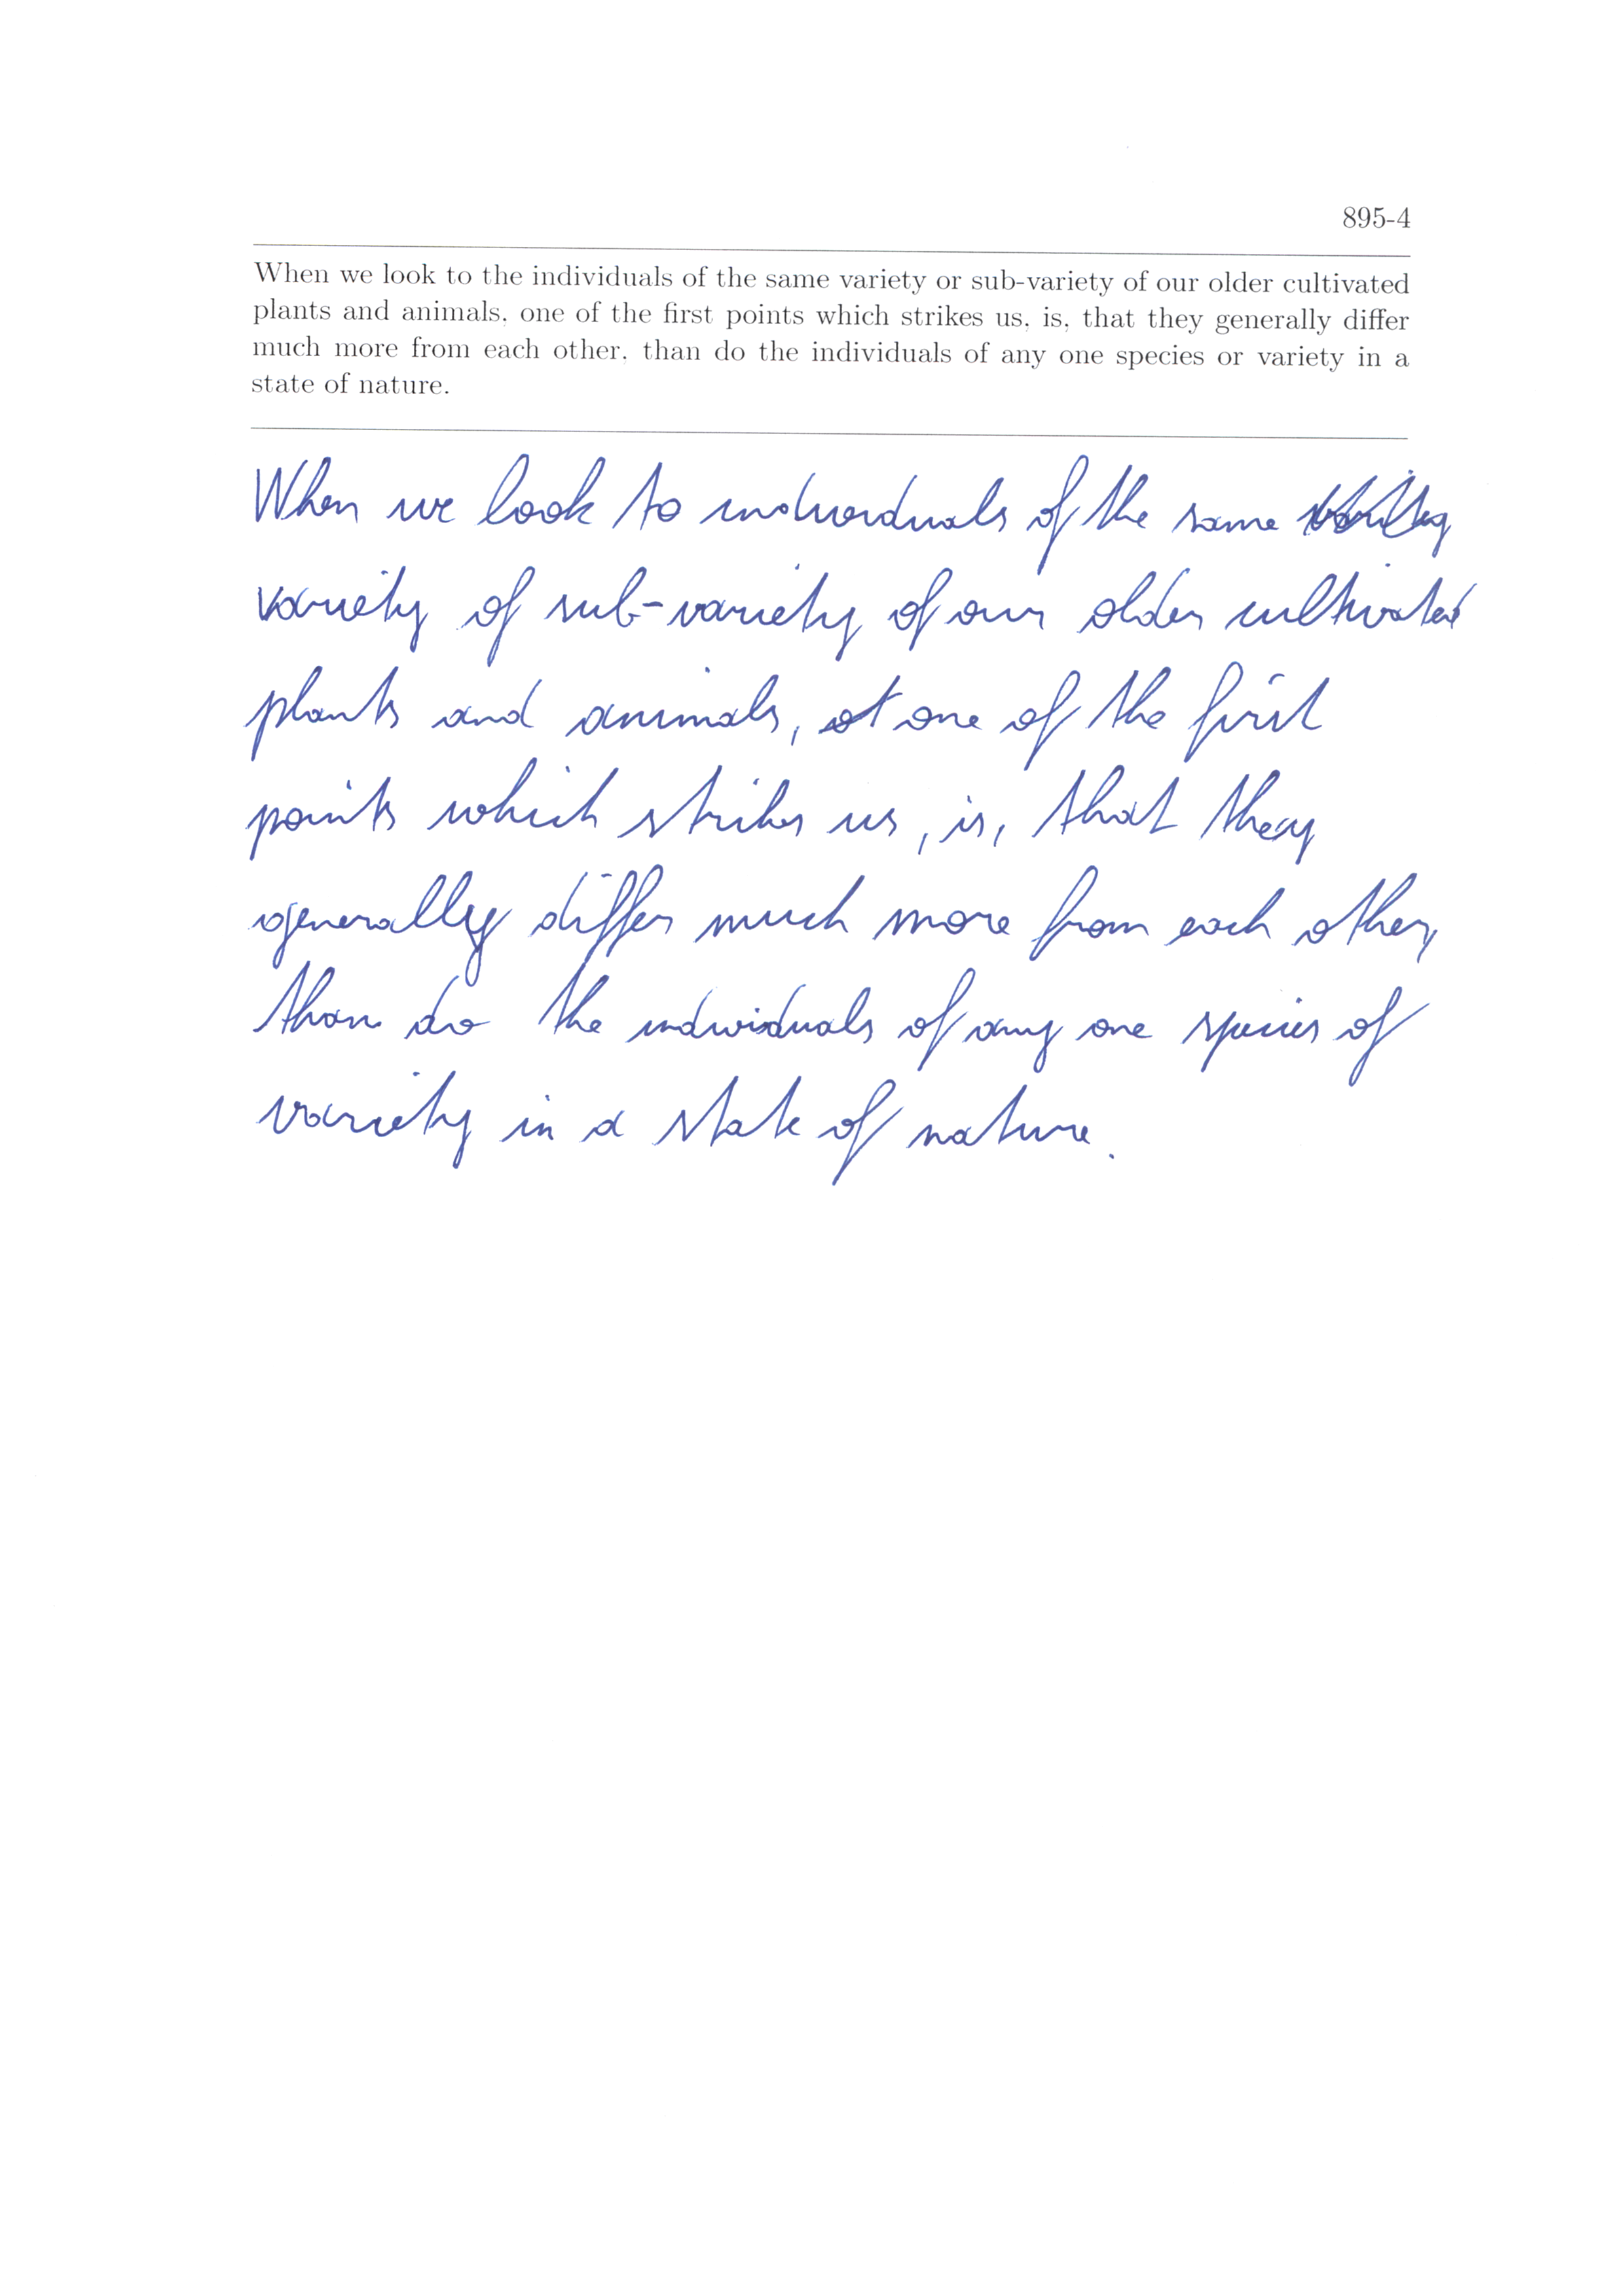 895-4
When we look to the individuals of the same variety or sub-variety of our older cultivated
plants and animals, one of the first points which strikes us, is, that they generally differ
much more from each other, than do the individuals of any one species or variety in a
state of nature.
When we look to individuals of the same
variety of sub-variety of our older cultivated
plants and animals, ot one of the first
points which strikes us, is, that they
generally differ much more from each other,
than do the individuals of any one species of
variety in a state of nature.